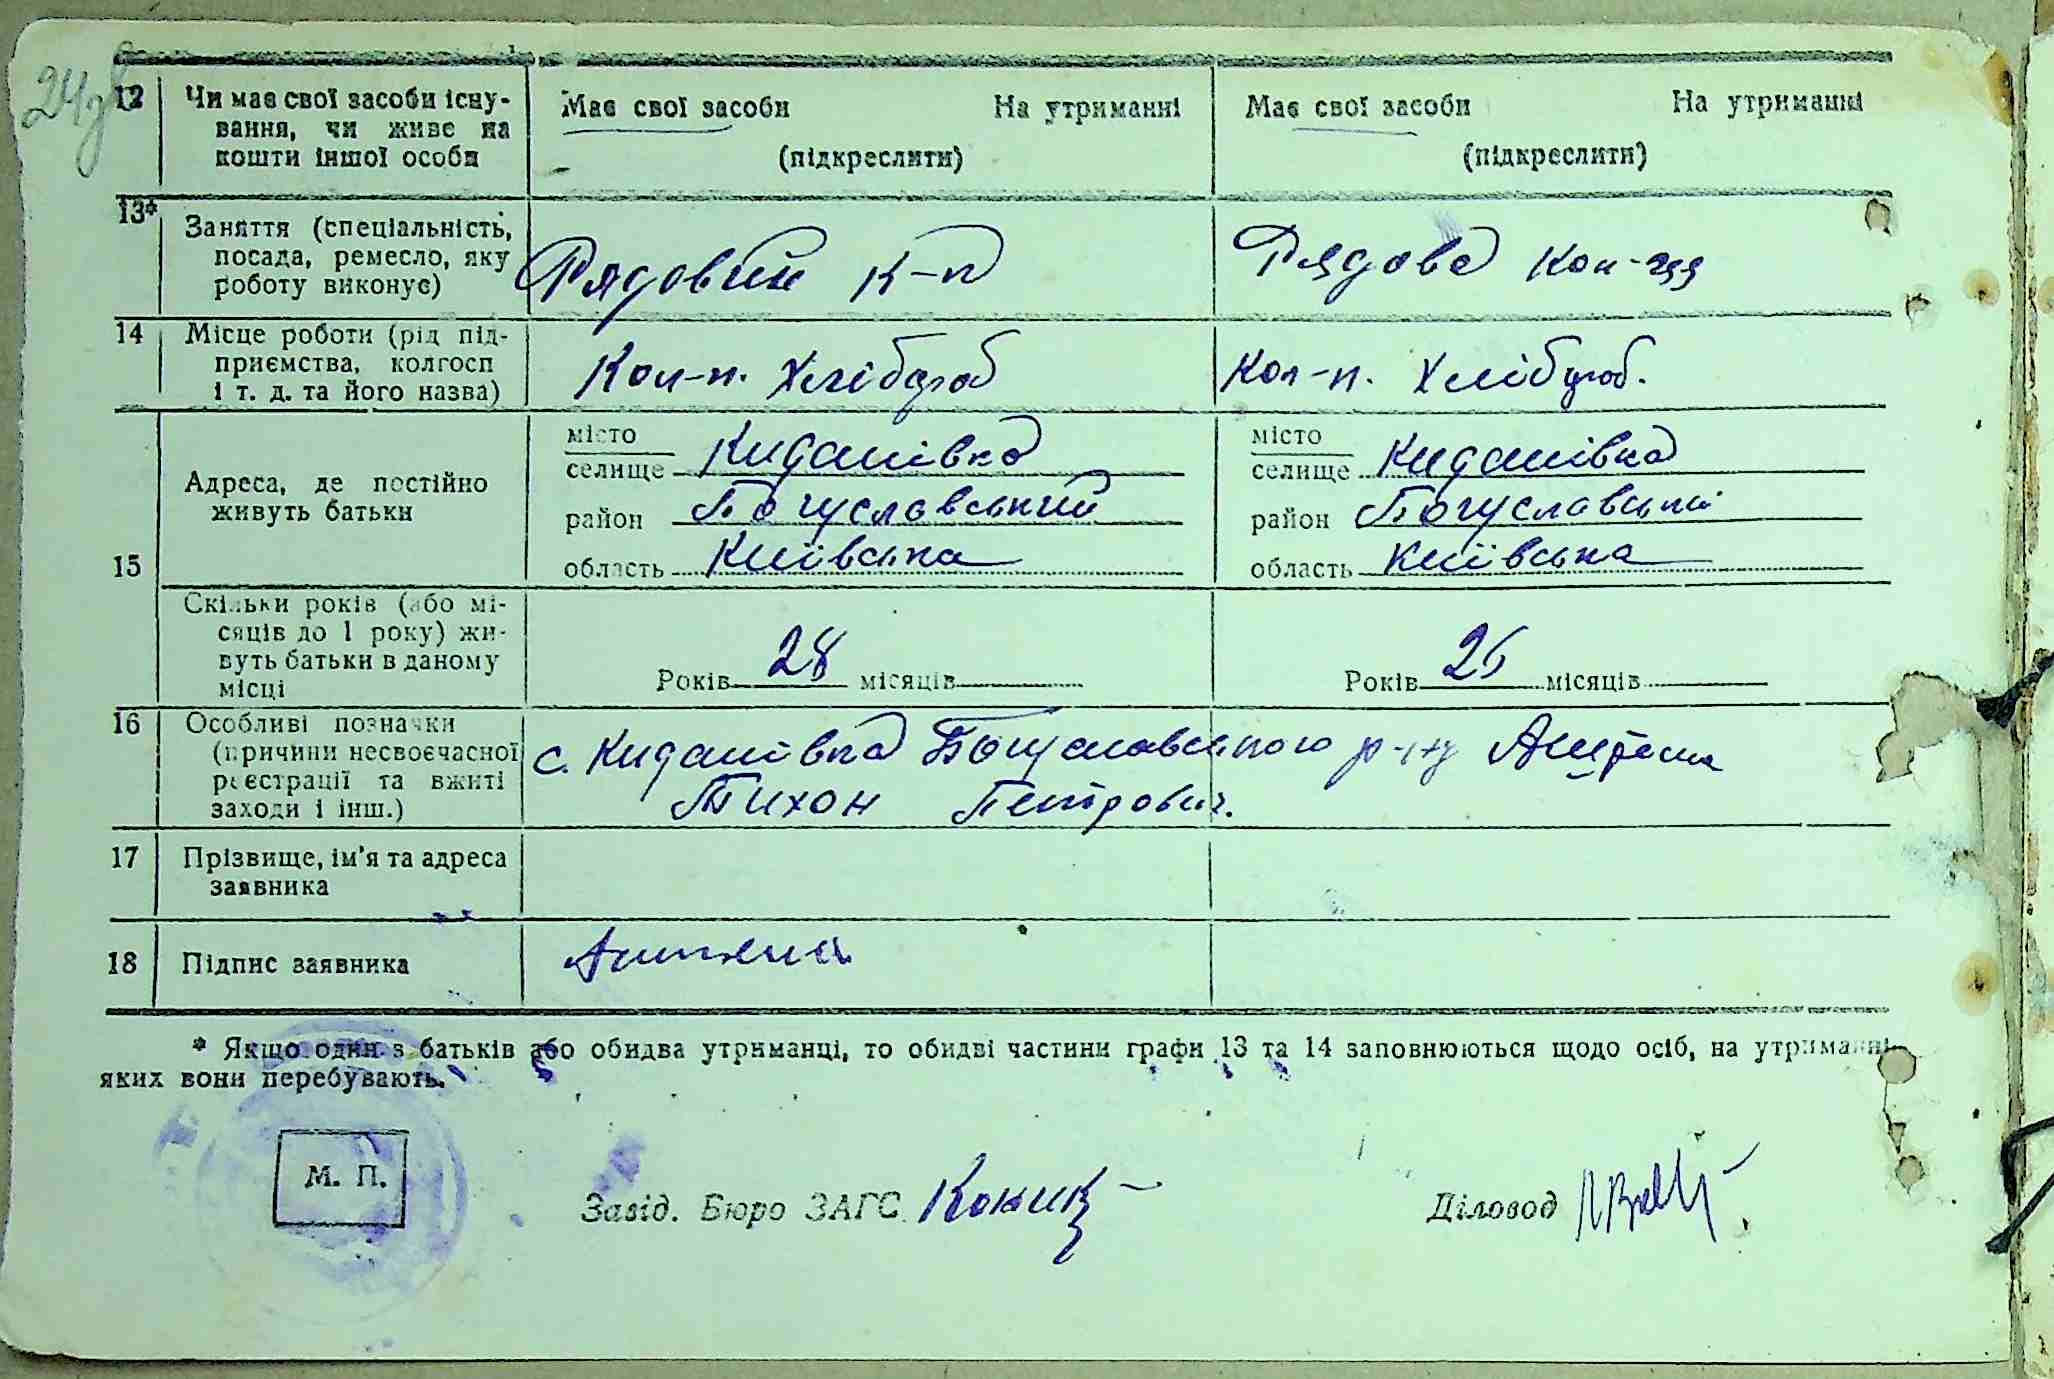 24
12 Чи має свої засоби існу- Має свої засоби На утриманні Має свої засоби На утриманні
вання, чи живе на
кошти іншої особи (підкреслити) (підкреслити)
13*
Заняття (спеціальність,
посада, ремесло, яку Рядовий к-п Рядова кол-ця
роботу виконує)
14 Місце роботи (рід під-
приємства, колгосп Кол-п. Хлібороб Кол-п. Хлібороб.
і т. д. та його назва)
місто місто
селище Киданівка селище Киданівка
Адреса, де постійно
живуть батьки район Богуславський район Богуславський
15 область Київська область Київська
Скільки років (або мі-
сяців до 1 року) жи-
вуть батьки в даному
місці Років 28 місяців Років 26 місяців
16 Особливі позначки
(причини несвоєчасної с. Киданівка Богуславського р-ну
реєстрації та вжиті
заходи і інш.) Тихон Петрович.
17 Прізвище, ім'я та адреса
заявника
18 Підпис заявника
* Якщо один з батьків або обидва утриманці, то обидві частини графи 13 та 14 заповнюються щодо осіб, на утриманні
яких вони перебувають.
М. П.
Завід. Бюро ЗАГС Діловод